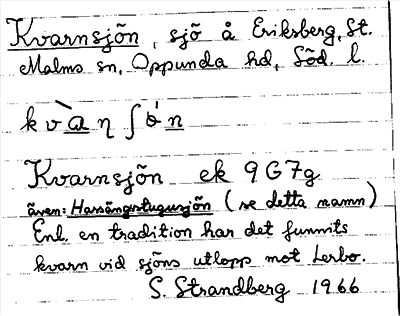 Kvarnsjön, sjö å Eriksberg, St.
Malms sn, Oppunda hd, Söd. l.
Kvarnsjön ek 9G7g
även: Hassängstugusjön (se detta namn)
Enl. en tradition har det funnits
kvarn vid sjöns utlopp mot Lerbo.
S. Strandberg 1966